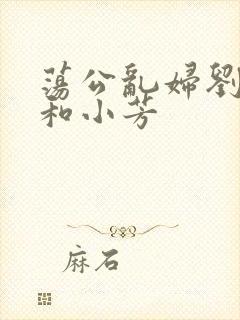 蕩公亂婦劉
和小芳
麻石